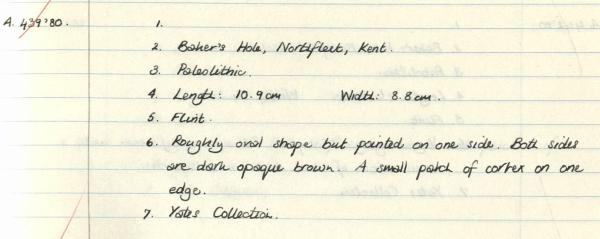 A. 439'80. 1.
2. Baker's Hole, Northfleet, Kent.
3. Paleolithic.
4. Length: 10.9cm Width: 8.8cm.
5. Flint.
6. Roughly oval shape but pointed on one side. Both sides
are dark opaque brown. A small patch of cortex on one
edge.
7. Yates Collection.